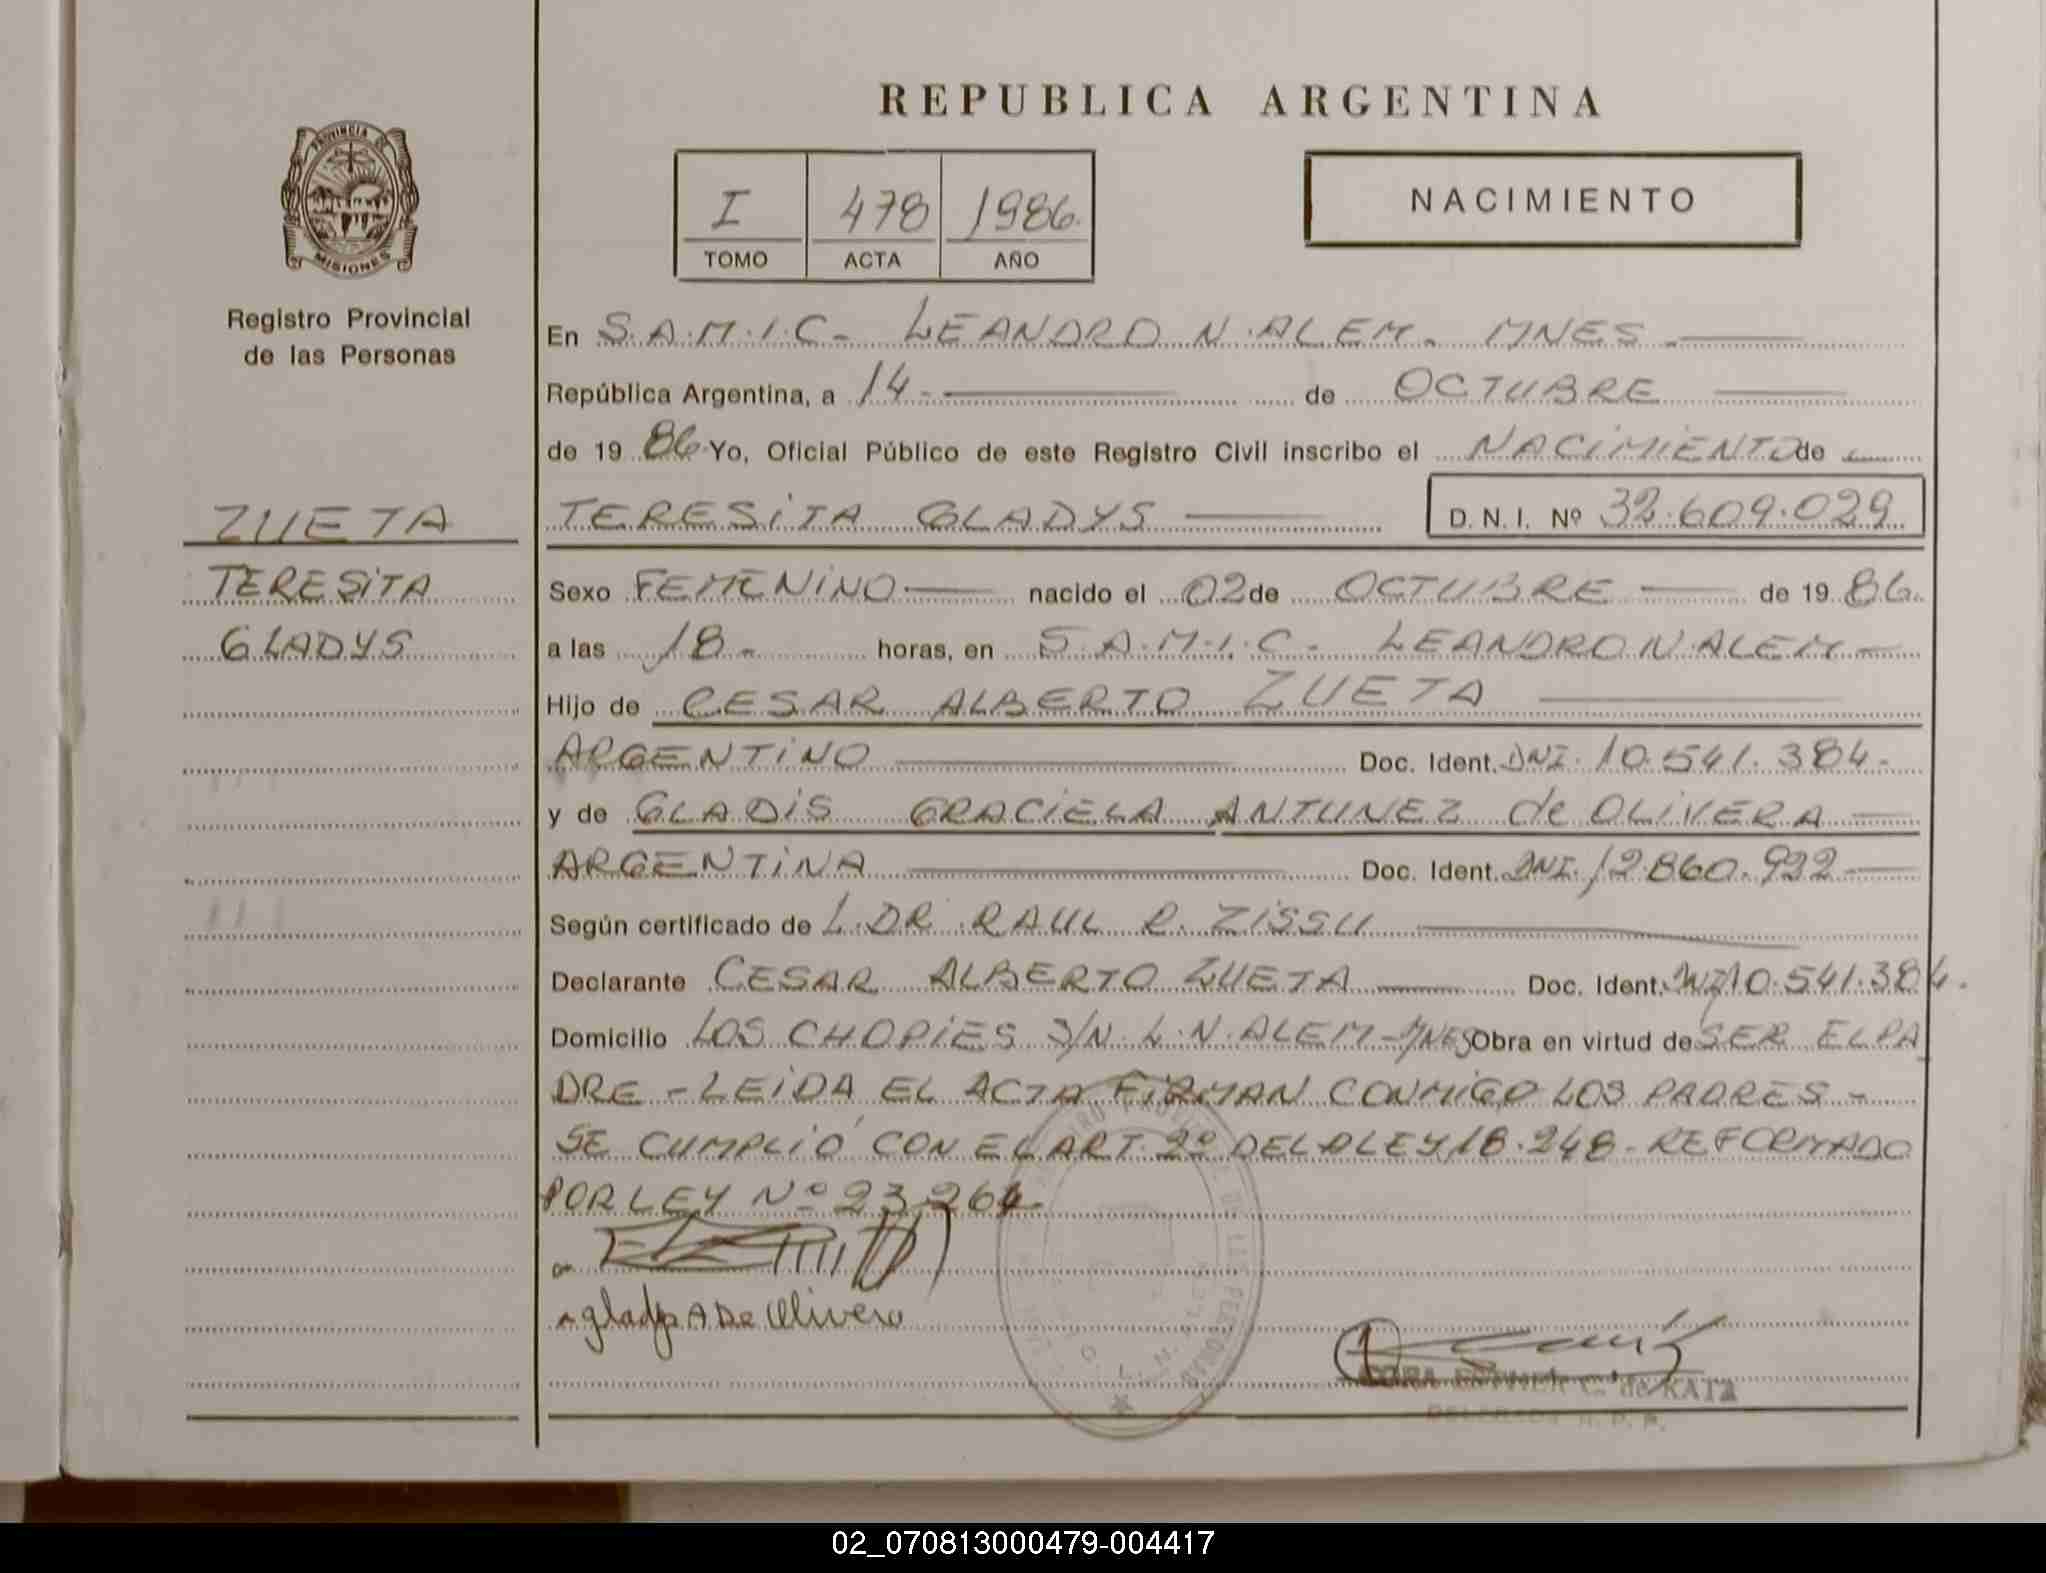 REPUBLICA ARGENTINA
PROVINCIA DE
MISIONES
Registro Provincial
de las Personas
I 478 1986.
TOMO ACTA AÑO
NACIMIENTO
En S.A.M.I.C- LEANDRO N.ALEM. MNES.
República Argentina, a 14- de OCTUBRE
de 1986 Yo, Oficial Público de este Registro Civil inscribo el NACIMIENTO de
ZUETA
TERESITA GLADYS
D. N. I. Nº 32.609.029
TERESITA
GLADYS
Sexo FEMENINO nacido el 02 de OCTUBRE de 1986.
a las 18- horas, en S.A.M.I.C- LEANDRO N.ALEM-
Hijo de CESAR ALBERTO ZUETA
ARGENTINO Doc. Ident. DNI. 10.541.384-
y de GLADIS GRACIELA ANTUNEZ de OLIVERA-
ARGENTINA Doc. Ident. DNI. 12.860.922-
Según certificado de L.DR.RAUL R. ZISSU
Declarante CESAR ALBERTO ZUETA Doc. Ident. DNI 10.541.384.
Domicilio LOS CHOPIES S/N. L.N.ALEM-MNES Obra en virtud de SER EL PA
DRE - LEIDA EL ACTA FIRMAN CONMIGO LOS PADRES-
SE CUMPLIÓ CON EL ART. 2º DE LA LEY 18.248- REFORMADO
POR LEY Nº 23.264-
gladys A De Olivera
C. de KATZ
02_070813000479-004417